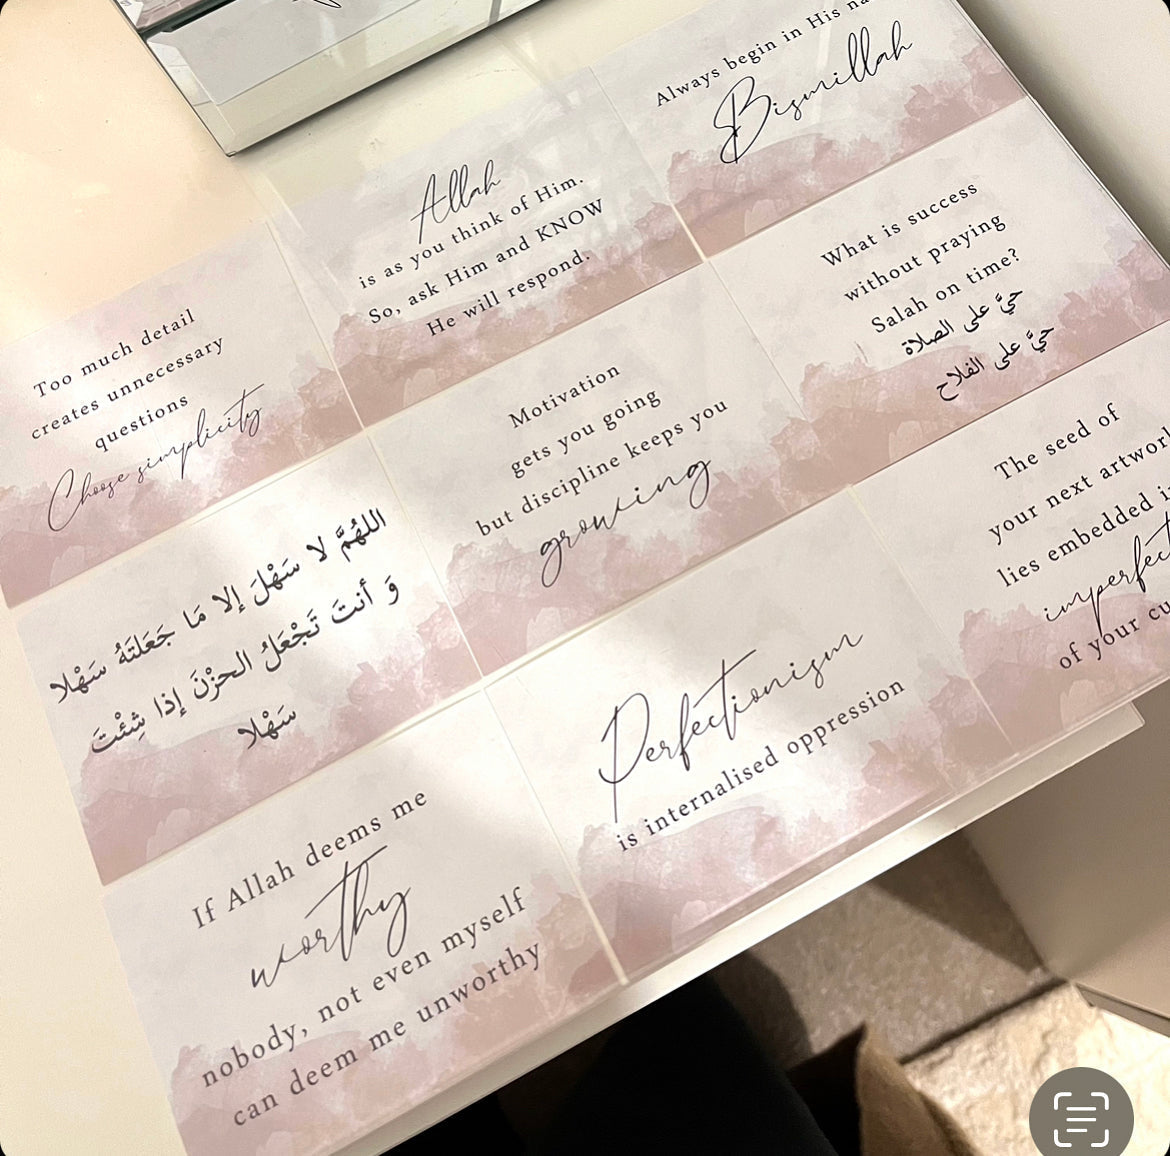 Always begin in His
Bismillah
Allah
is as you think of Him.
So, ask Him and KNOW
He will respond.
What is success
without praying
Salah on time?
حيَّ على الصلاة
حيَّ على الفلاح
Too much detail
creates unnecessary
questions
Choose simplicity
Motivation
gets you going
but discipline keeps you
growing
The seed of
your next
lies embedded
of your
اللهُمَّ لا سَهْلَ إلا مَا جَعَلتَهُ سَهْلا
وَ أنتَ تَجْعَلُ الحزْنَ إذا شِئْتَ
سَهْلا
Perfectionism
is internalised oppression
If Allah deems me
worthy
nobody, not even myself
can deem me unworthy